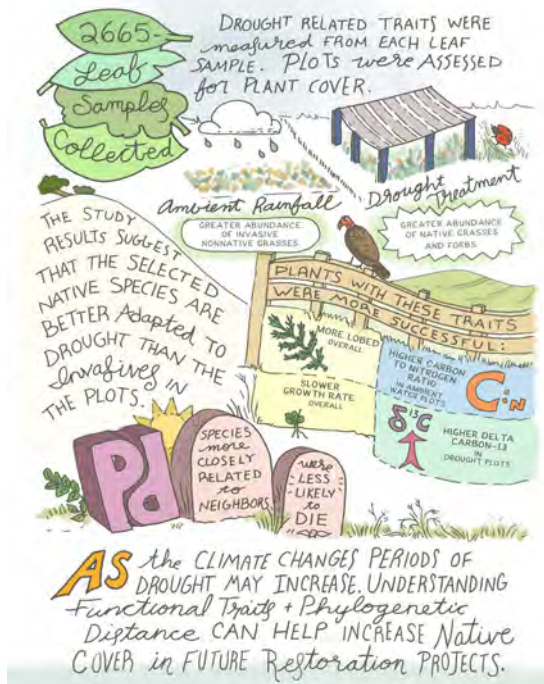 2665-
Leaf
Samples
Collected
DROUGHT RELATED TRAITS WERE
measured FROM EACH LEAF
SAMPLE. PLOTS were ASSESSED
for PLANT COVER.
Ambient Rainfall
GREATER ABUNDANCE
OF INVASIVE
NONNATIVE GRASSES
Drought Treatment
GREATER ABUNDANCE
OF NATIVE GRASSES
AND FORBS
THE STUDY
RESULTS SUGGEST
THAT THE SELECTED
NATIVE SPECIES ARE
BETTER Adapted TO
DROUGHT THAN THE
Invasives IN
THE PLOTS.
PLANTS WITH THESE TRAITS
WERE MORE SUCCESSFUL:
MORE LOBED
OVERALL
SLOWER
GROWTH RATE
OVERALL
HIGHER CARBON
TO NITROGEN
RATIO
IN AMBIENT
WATER PLOTS
C:N
δ13C
HIGHER DELTA
CARBON-13
IN
DROUGHT PLOTS
Pd
SPECIES
more
CLOSELY
RELATED
to
NEIGHBORS
were
LESS
LIKELY
to
DIE
AS the CLIMATE CHANGES PERIODS OF
DROUGHT MAY INCREASE. UNDERSTANDING
Functional Traits + Phylogenetic
Distance CAN HELP INCREASE Native
COVER in FUTURE Restoration PROJECTS.